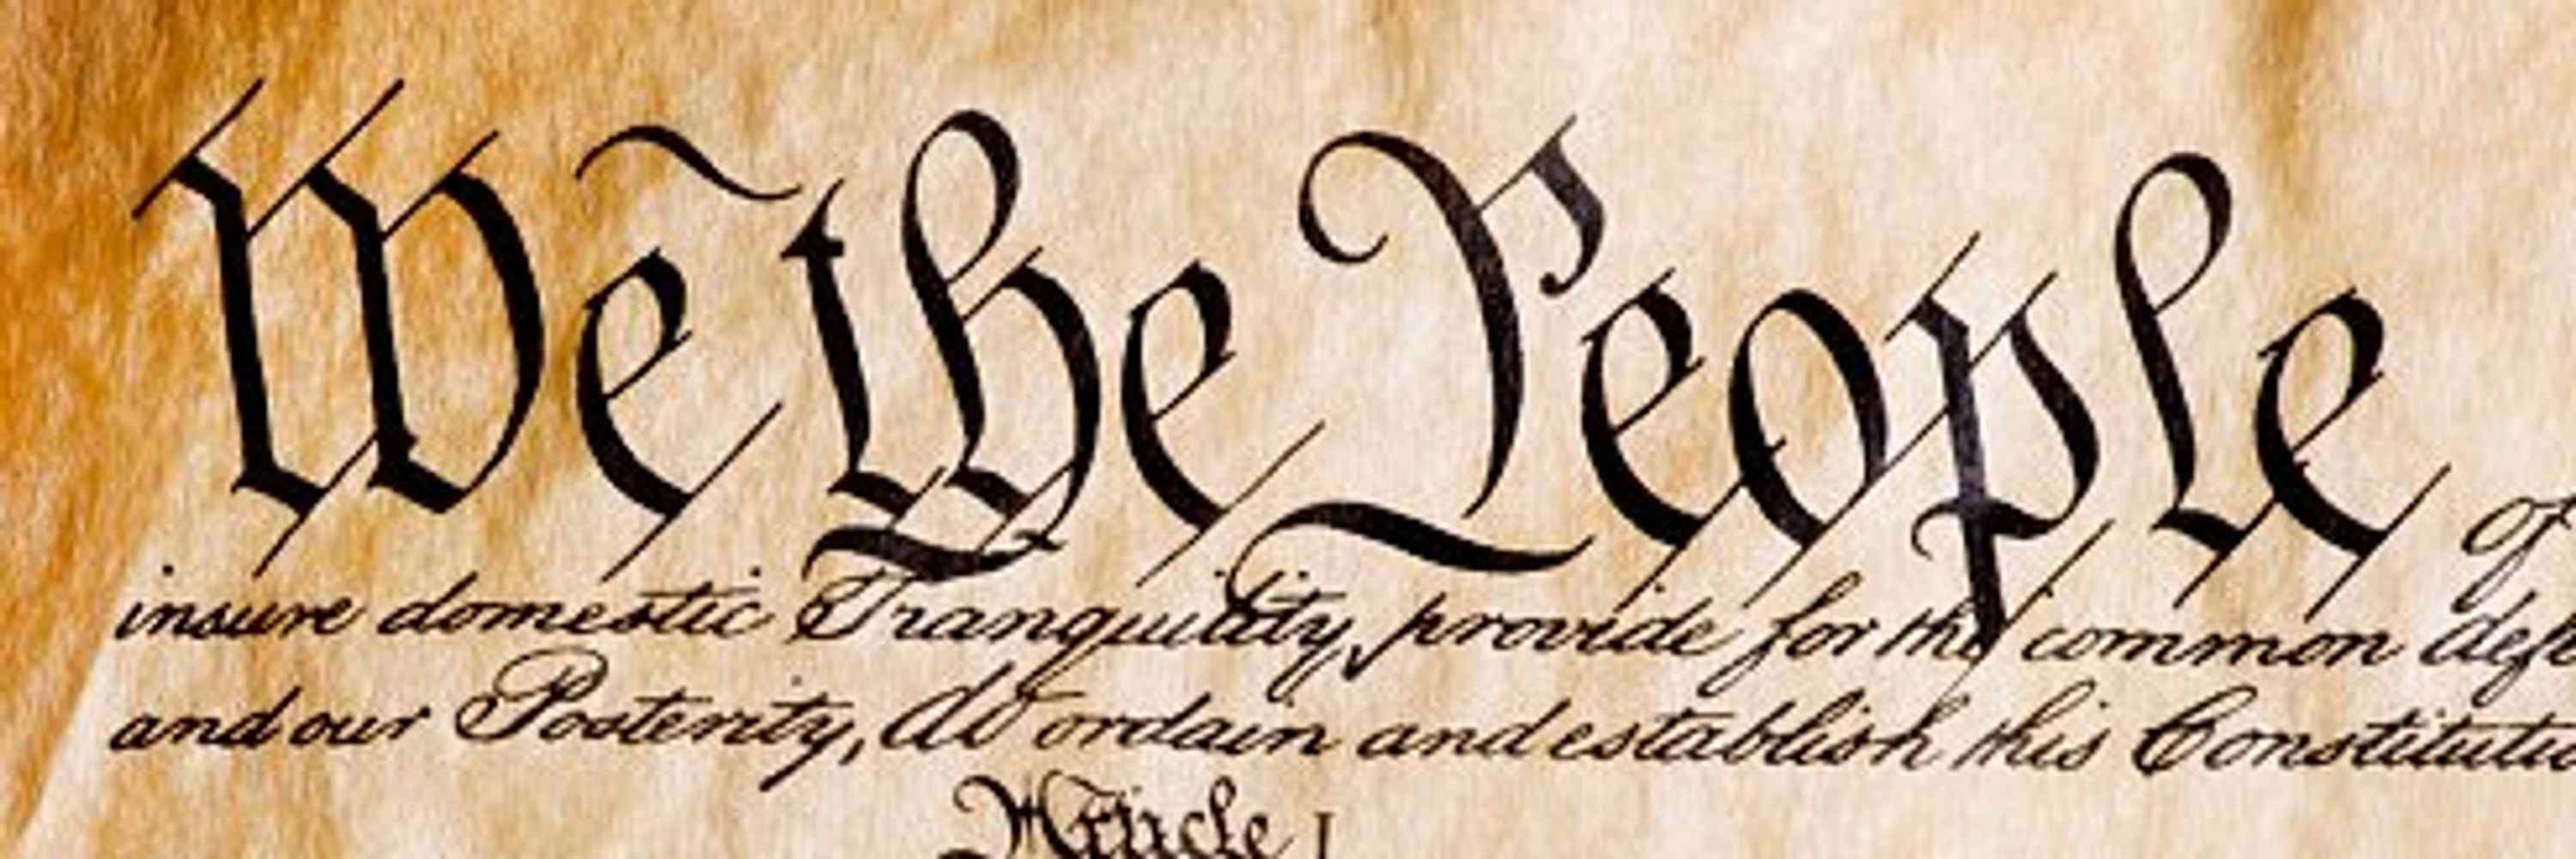 We the People of
insure domestic Tranquility, provide for the common defe
and our Posterity, do ordain and establish this Constitutio
Article I